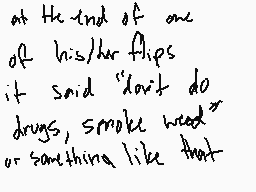 at the end of one
of his/her flips
it said "don't do
drugs, smoke weed"
or something like that